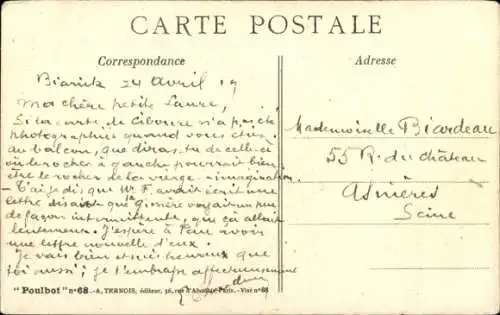 CARTE POSTALE
Correspondance
Adresse
Biarritz 24 Avril 19
Ma chère petite Laure,
Si la carte de Ciboure n'a pas été
photographiée quand vous étiez
au balcon, que diras-tu de celle-ci
où le rocher à gauche pourrait bien
être le rocher de la vierge - imagination
- T'ai je dis que Mr F. avait écrit une
lettre disant
de façon intermittente, que ça allait
lentement. J'espère à Pau avoir
une lettre nouvelle d'eux.
Je vais bien et très heureux que
toi aussi; je t'embrasse affectueusement
Mademoiselle Biardeau
55 R. du château
Asnières
Seine
"Poulbot" n° 68.-A. TERNOIS, éditeur, 36, rue d'Aboukir, Paris.-Visé n° 68